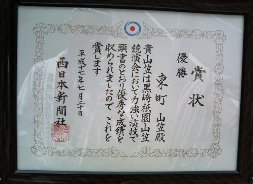 賞状
優勝
東町 山笠殿
貴山笠は黒崎祇園山笠
競演会において力強い演技で
頭書のとおり優秀な成績を
収められましたので これを
賞します
平成十七年七月二十日
西日本新聞社